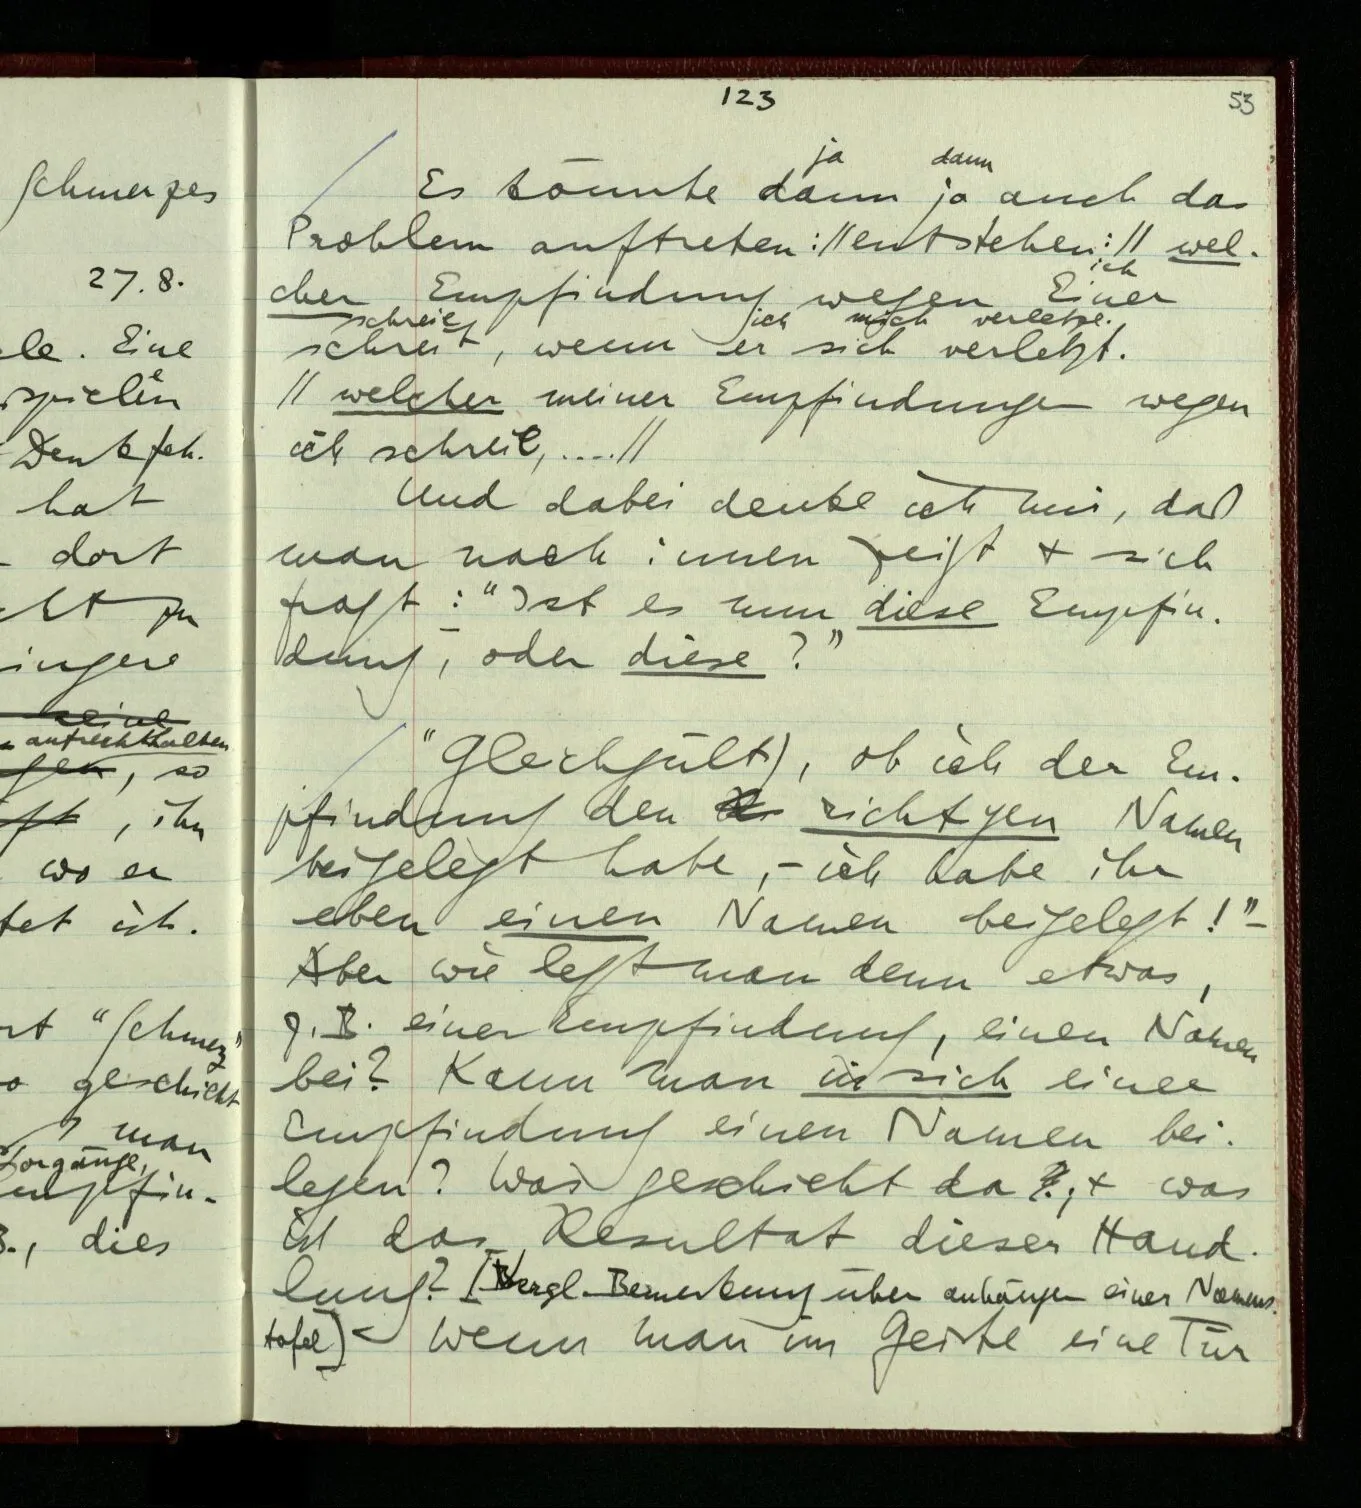 Schmerzes
27.8.
Eine
spielen
Denkfeh.
hat
dort
zu
aufrechthalten
, so
, ihn
wo er
"Schmerz"
geschieht
man
Vorgänge,
Empfin-
dies
123
53
ja dann
Es könnte dann ja auch das
Problem auftreten: // entstehen: // wel-
ich
cher Empfindung wegen Einer
schreie ich mich verletze.
schreit, wenn er sich verletzt.
// welcher meiner Empfindungen wegen
ich schreie, .... //
Und dabei denke ich mir, daß
man nach innen zeigt & sich
fragt: "Ist es nun diese Empfin-
dung, oder diese?"
"Gleichgültig, ob ich der Em-
pfindung den richtigen Namen
beigelegt habe, – ich habe ihr
eben einen Namen beigelegt!" –
Aber wie legt man denn etwas,
z.B. einer Empfindung, einen Namen
bei? Kann man in sich einer
Empfindung einen Namen bei-
legen? Was geschieht da?, & was
ist das Resultat dieser Hand-
lung? [Vergl. Bemerkung über anhängen einer Namens-
tafel] – Wenn man im Geiste eine Tür